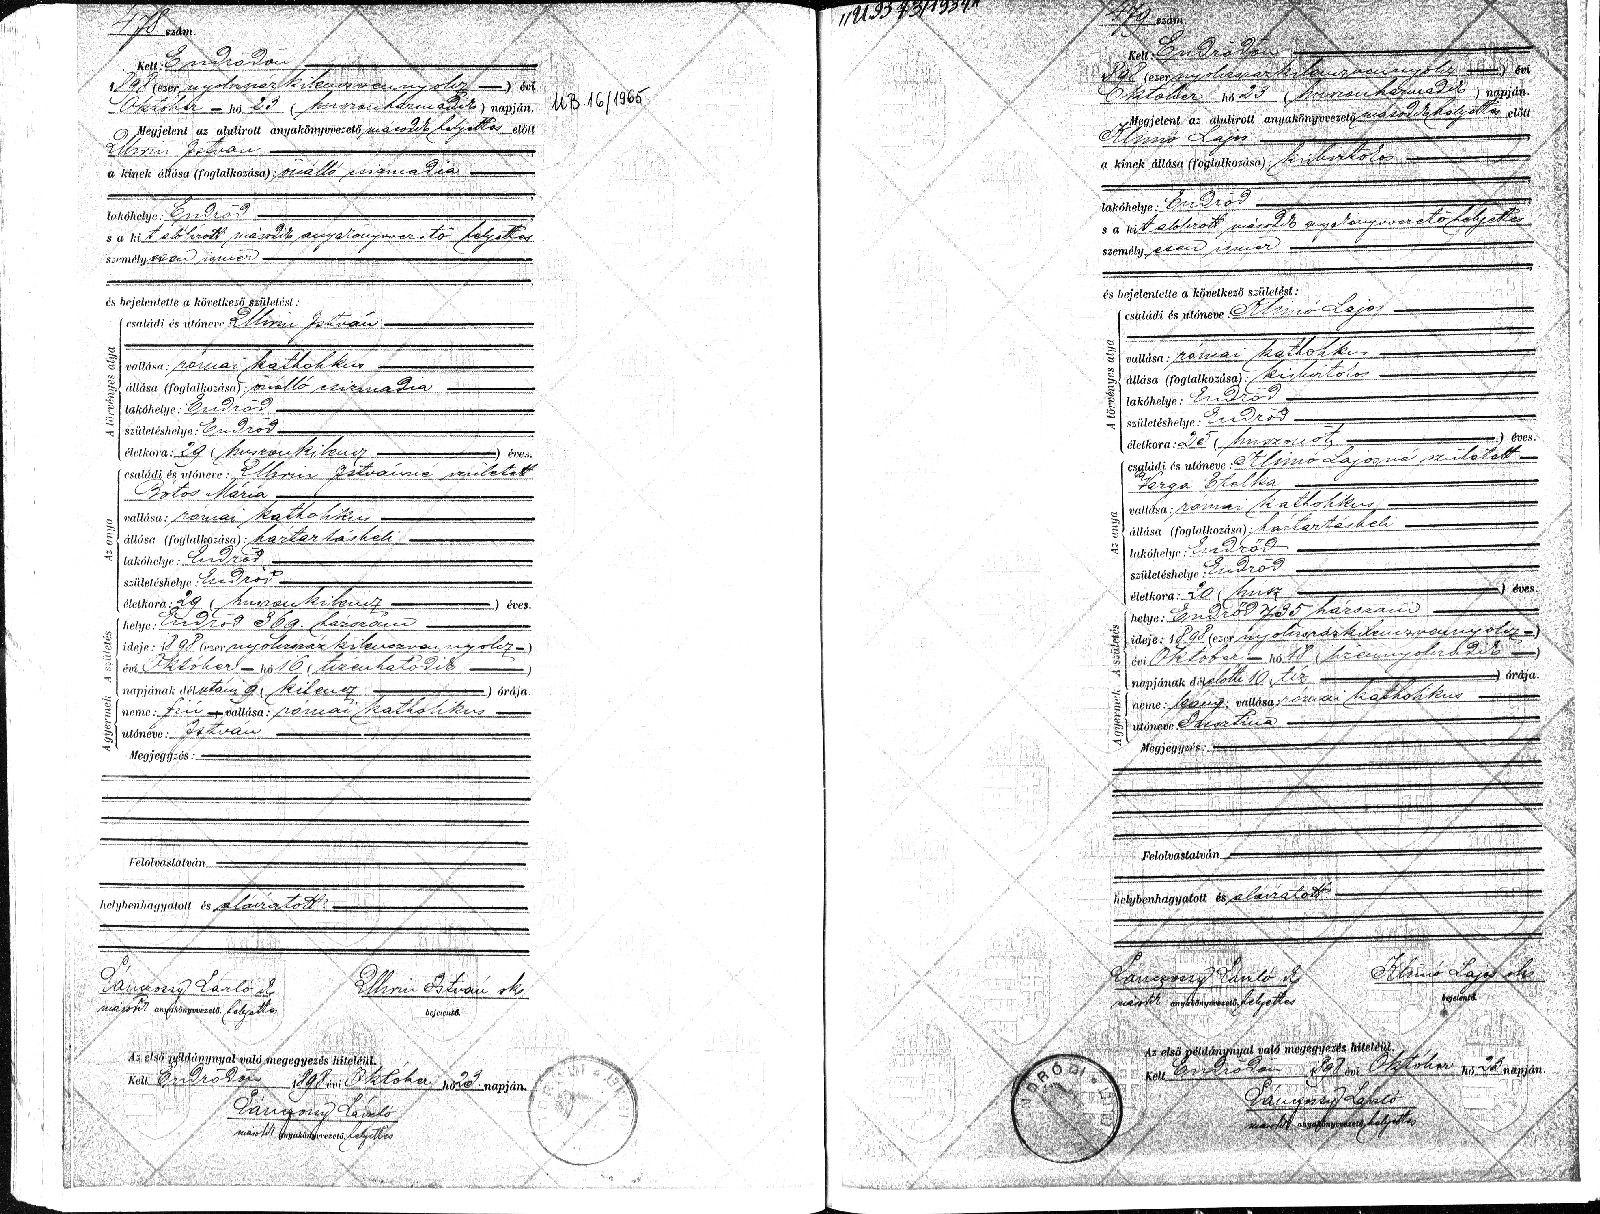 478 szám.
Kelt: Endrődön
1898 (ezer nyolczszázkilenczvennyolcz) évi
Október hó 23 (huszonharmadik) napján.
UB 16/1965
Megjelent az alulirott anyakönyvvezető második helyettes előtt
Uhrin István
a kinek állása (foglalkozása): önálló csizmadia
lakóhelye: Endrőd
s a kit alólirott második anyakönyvvezető helyettes
személyesen ismer
és bejelentette a következő születést:
A törvényes atya
családi és utóneve Uhrin István
vallása: római katholikus
állása (foglalkozása): önálló csizmadia
lakóhelye: Endrőd
születéshelye: Endrőd
életkora: 29 (huszonkilencz) éves.
Az anya
családi és utóneve: Uhrin Istvánné született
Botos Mária
vallása: római katholikus
állása (foglalkozása): háztartásbeli
lakóhelye: Endrőd
születéshelye: Endrőd
életkora: 29 (huszonkilencz) éves.
A születés
helye: Endrőd 369. házszám
ideje: 1898 (ezer nyolczszázkilenczvennyolcz)
évi Október hó 16 (tizenhatodik)
napjának délutáni 9 (kilencz) órája.
A gyermek
neme: fiú; vallása: római katholikus
utóneve: István
Megjegyzés:
Felolvastatván
helybenhagyatott és aláiratott
Uhrin István sk
másodk anyakönyvvezető helyettes
bejelentő.
Az első példánynyal való megegyezés hiteléül.
Kelt Endrődön 1898 évi Október hó 23 napján.
László
másodk anyakönyvvezető helyettes
479 szám.
Kelt: Endrődön
1898 (ezer nyolczszázkilenczvennyolcz) évi
Október hó 23 (huszonharmadik) napján.
Megjelent az alulirott anyakönyvvezető második helyettes előtt
Klimó Lajos
a kinek állása (foglalkozása): kisbirtokos
lakóhelye: Endrőd
s a kit alólirott másodk anyakönyvvezető helyettes
személyesen ismer
és bejelentette a következő születést:
A törvényes atya
családi és utóneve: Klimó Lajos
vallása: római katholikus
állása (foglalkozása): kisbirtokos
lakóhelye: Endrőd
születéshelye: Endrőd
életkora: 25 (huszonöt) éves.
Az anya
családi és utóneve: Klimó Lajosné született
Varga Etelka
vallása: római katholikus
állása (foglalkozása): háztartásbeli
lakóhelye: Endrőd
születéshelye: Endrőd
életkora: 20 (husz) éves.
A születés
helye: Endrőd 735 házszám
ideje: 1898 (ezer nyolczszázkilenczvennyolcz)
évi Október hó 18 (tizennyolczadik)
napjának délelőtti 10 (tíz) órája.
A gyermek
neme: leány; vallása: római katholikus
utóneve:
Megjegyzés:
Felolvastatván
helybenhagyatott és aláiratott
Klimó Lajos sk
másodk anyakönyvvezető helyettes
bejelentő.
Az első példánynyal való megegyezés hiteléül.
Kelt Endrődön 1898 évi Október hó 23 napján.
László
másodk anyakönyvvezető helyettes